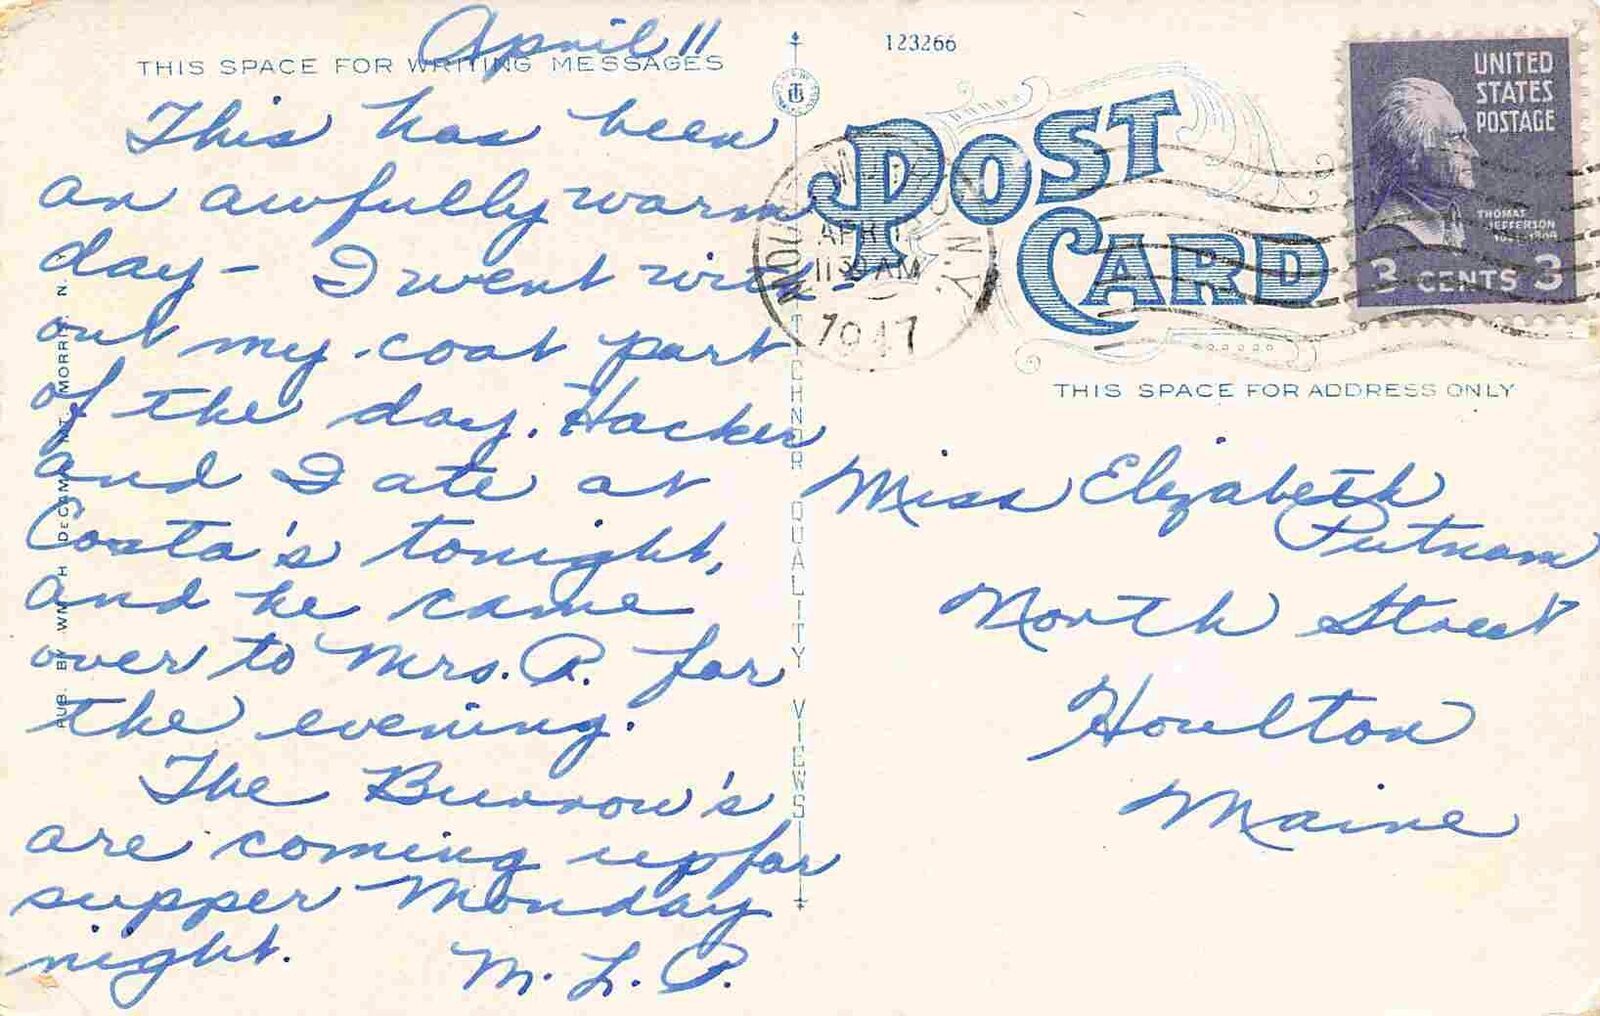 April 11
THIS SPACE FOR WRITING MESSAGES
This has been
an awfully warm
day - I went with-
out my coat part
of the day. Hacker
and I ate at
Costa's tonight,
and he came
over to Mrs. P. for
the evening.
The Burrow's
are coming up for
supper Monday
night.
M. L. P.
PUB. BY WM H DECAMP, MT. MORRIS, N.
TICHNOR QUALITY VIEWS
123266
POST CARD
N.Y.
APR
11 30 AM
1947
UNITED
STATES
POSTAGE
THOMAS
JEFFERSON
3 CENTS 3
THIS SPACE FOR ADDRESS ONLY
Miss Elizabeth
Putnam
North Street
Houlton
Maine